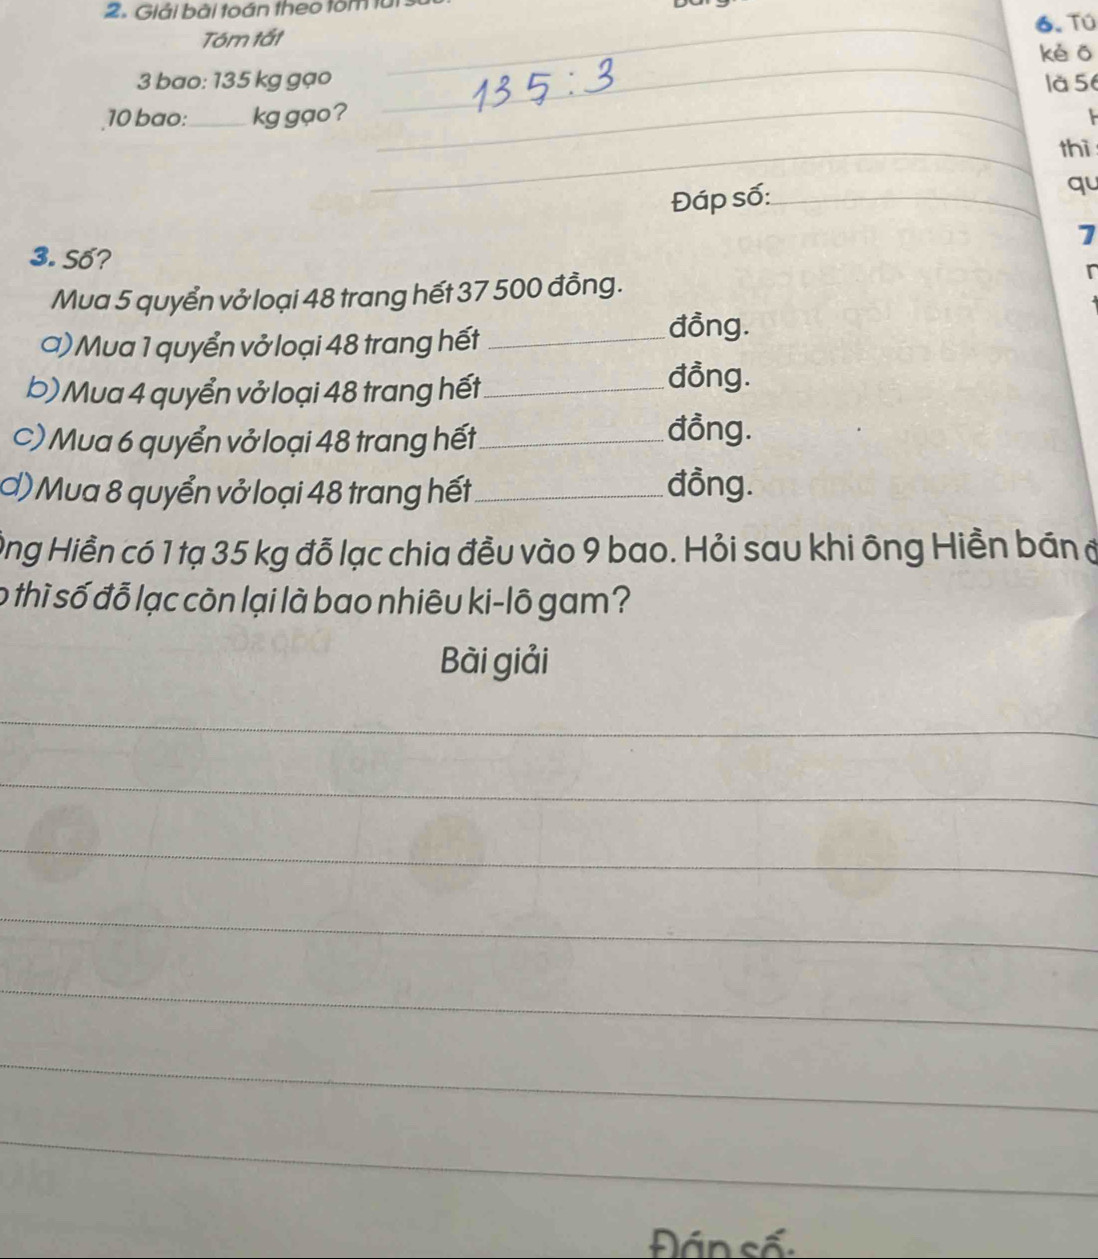 2. Giải bài toán theo tóm
Tóm tắt
3 bao: 135 kg gạo
10 bao:______ kg gạo?
135 : 3
Đáp số:
3. Số?
Mua 5 quyển vở loại 48 trang hết 37 500 đồng.
a) Mua 1 quyển vở loại 48 trang hết ______ đồng.
b) Mua 4 quyển vở loại 48 trang hết ______ đồng.
c) Mua 6 quyển vở loại 48 trang hết ______ đồng.
d) Mua 8 quyển vở loại 48 trang hết ______ đồng.
Ông Hiền có 1 tạ 35 kg đỗ lạc chia đều vào 9 bao. Hỏi sau khi ông Hiền bán
thì số đỗ lạc còn lại là bao nhiêu ki-lô gam?
Bài giải
Đáp số:
6. Tú
kẻ ô
là 56
thì
qu
7